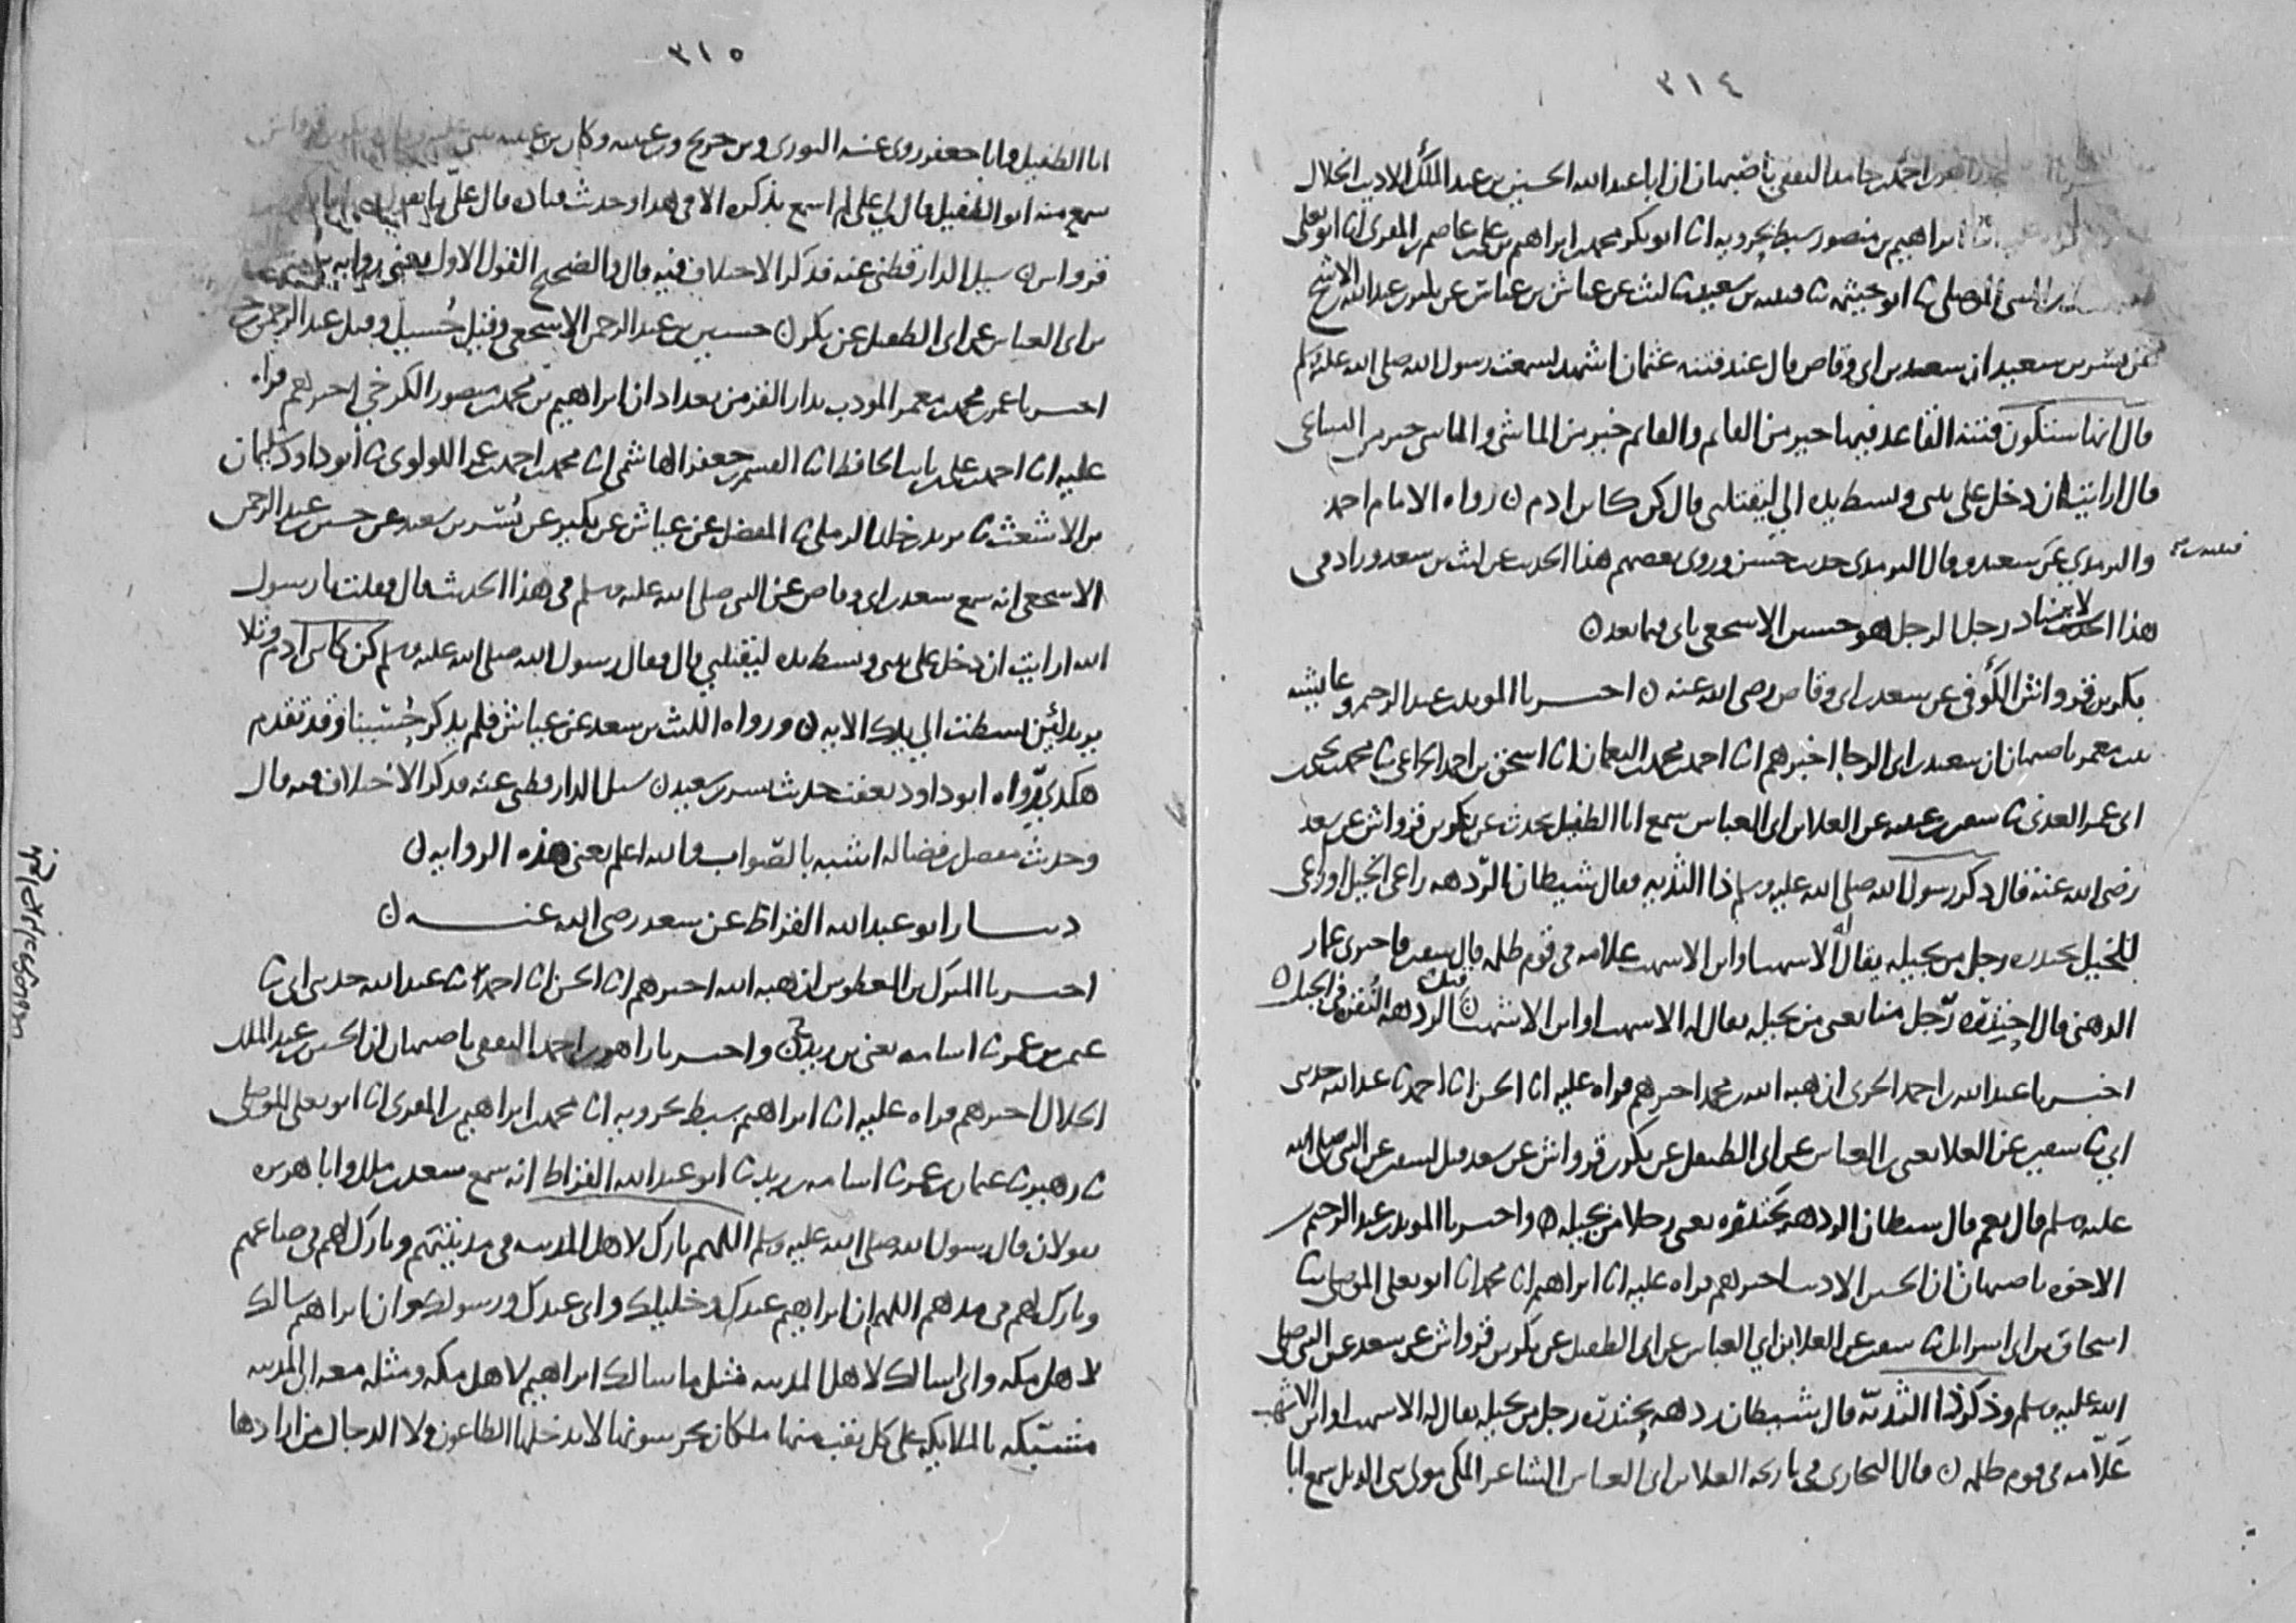 ٣١٤
احمد بن حامد الثقفي باصبهان ان ابا عبد الله الحسين بن عبد الملك الاديب الخلال
ابراهيم بن منصور سبط بحرويه انا ابو بكر محمد بن ابراهيم بن علي بن عاصم بن المقرئ انا ابو يعلى
الموصلي ثنا ابو خيثمه ثنا قتيبه بن سعيد ثنا ليث عن عياش بن عباس عن بكير بن عبد الله الاشج
عن بسر بن سعيد ان سعد بن ابي وقاص قال عند فتنه عثمان اشهد لسمعت رسول الله صلى الله عليه وسلم
قال انها ستكون فتنه القاعد فيها خير من القايم والقايم خير من الماشي والماشي خير من الساعي
قال ارايت ان دخل علي بيتي وبسط يده الي ليقتلني قال كن كابن ادم ن رواه الامام احمد
والترمذي عن سعيد وقال الترمذي حديث حسن وروى بعضهم هذا الحديث عن ليث بن سعد وزاد في
هذا الاسناد رجلا الرجل هو حسين الاشجعي ياتي فيما بعد ن
بكر بن قرواش الكوفي عن سعد بن ابي وقاص رضي الله عنه ن اخبرنا المويد بن عبد الرحيم وعايشه
بنت معمر باصبهان ان سعيد بن ابي الرجا اخبرهم انا احمد بن محمد بن النعمان انا اسحق بن احمد الخزاعي ثنا محمد بن يحيى بن
ابي عمر العدني ثنا سفين بن عيينه عن العلا بن ابي العباس سمع ابا الطفيل يحدث عن بكر بن قرواش عن سعد
رضي الله عنه قال ذكر رسول الله صلى الله عليه وسلم ذا الثديه فقال شيطان الردهه راعي الخيل او راعي
للخيل يحتدره رجل من بجيله يقال له الاشهب او ابن الاشهب علامه في قوم ظلمه قال سفين فاخبرني عمار
الدهني قال احتدره رجل منا يعني من بجيله يقال له الاشهب او ابن الاشهب ن قيل الردهه النقره في الجبل ن
اخبرنا عبد الله بن احمد الحربي ان هبه الله بن محمد اخبرهم قراه عليه انا الحسن انا احمد ثنا عبد الله حدثني
ابي ثنا سفين عن العلا يعني بن العباس عن ابي الطفيل عن بكر بن قرواش عن سعد قيل لسفين عن النبي صلى الله
عليه وسلم قال نعم قال شيطان الردهه يحتدره يعني رجلا من بجيله ن واخبرنا المويد بن عبد الرحيم بن
الاخوه باصبهان ان الحسين الاديب اخبرهم قراه عليه انا ابراهيم انا محمد انا ابو يعلى الموصلي ثنا
اسحاق بن ابي اسرايل ثنا سفين عن العلا بن ابي العباس عن ابي الطفيل عن بكر بن قرواش عن سعد عن النبي صلى
الله عليه وسلم وذكر ذا الثديه قال شيطان ردهه يحتدره رجل من بجيله يقال له الاشهب او ابن الاشهب
علامه في قوم ظلمه ن قال البخاري في تاريخه العلا بن ابي العباس الشاعر المكي مولى بني الديل سمع ابا
٣١٥
ابا الطفيل وابا جعفر روى عنه الثوري وبن جريج وبن عيينه وكان بن عيينه
سمع منه ابو الطفيل قال لي علي لم اسمع بذكره الا في هذا وحديث قتاده قال علي
قرواش ن سيل الدارقطني عنه فذكر الاختلاف فيه قال والصحيح القول الاول يعني روايه
بن ابي العباس عن ابي الطفيل عن بكر ن حسين بن عبد الرحمن الاشجعي وقيل حسيل وقيل عبد الرحمن بن
اخبرنا عمر بن محمد بن معمر المودب بدار القز من بغداد ان ابراهيم بن محمد بن منصور الكرخي اخبرهم قراه
عليه انا احمد بن علي بن ثابت الحافظ انا القسم بن جعفر الهاشمي انا محمد بن احمد بن عمرو اللولوي ثنا ابو داود سليمان
بن الاشعث ثنا يزيد بن خالد الرملي ثنا المفضل عن عياش عن بكير عن بسر بن سعيد عن حسين بن عبد الرحمن
الاشجعي انه سمع سعد بن ابي وقاص عن النبي صلى الله عليه وسلم في هذا الحديث قال فقلت يا رسول
الله ارايت ان دخل علي بيتي وبسط يده ليقتلني قال فقال رسول الله صلى الله عليه وسلم كن كابن ادم وتلا
يزيد لئن بسطت الي يدك الايه ن ورواه الليث بن سعد عن عياش فلم يذكر حسينا وقد تقدم
هكذى رواه ابو داود بعقب حديث بسر بن سعيد ن سيل الدارقطني عنه فذكر الاختلاف فيه قال
وحديث مفضل بن فضاله اشبه بالصواب والله اعلم يعني هذه الروايه ن
دينار ابو عبد الله القراظ عن سعد رضي الله عنه ن
اخبرنا المبارك بن المعطوش ان هبه الله اخبرهم انا الحسن انا احمد ثنا عبد الله حدثني ابي ثنا
عثمن بن عمر ثنا اسامه يعني بن زيد ح واخبرنا زاهر بن احمد الثقفي باصبهان ان الحسين بن عبد الملك
الخلال اخبرهم قراه عليه انا ابراهيم سبط بحرويه انا محمد بن ابراهيم بن المقرئ انا ابو يعلى الموصلي
ثنا زهير ثنا عثمان بن عمر ثنا اسامه بن زيد ثنا ابو عبد الله القراظ انه سمع سعد بن ملك وابا هريره
يقولان قال رسول الله صلى الله عليه وسلم اللهم بارك لاهل المدينه في مدينتهم وبارك لهم في صاعهم
وبارك لهم في مدهم اللهم ان ابراهيم عبدك وخليلك واني عبدك ورسولك وان ابراهيم سالك
لاهل مكه واني اسالك لاهل المدينه مثل ما سالك ابراهيم لاهل مكه ومثله معه ان المدينه
مشتبكه بالملايكه على كل نقب منها ملكان يحرسونها لا يدخلها الطاعون ولا الدجال من ارادها